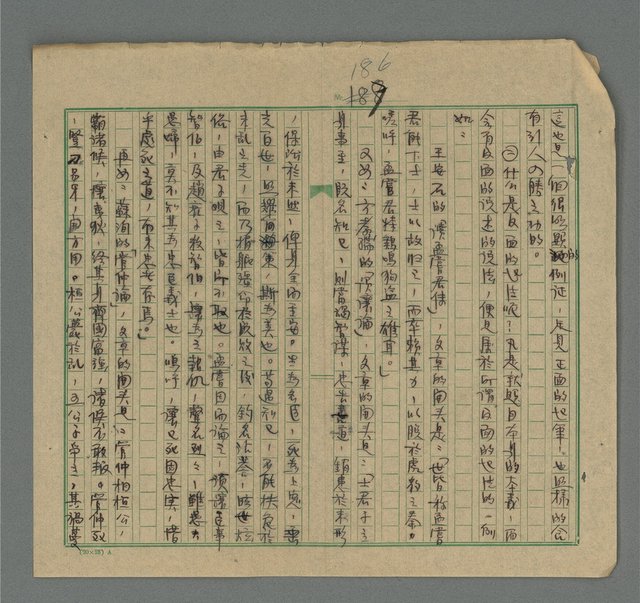 186
188
這也是一個很明顯的例証,足見正面的起筆,也照樣的會
有引人入勝之功的。
㈡什么是反面的起法呢?凡是就題目本身的本義,而
含有反面的說述的說法,便是屬於所謂反面的起法的一例
如:
王安石的「讀孟嘗君傳」,文章的開頭是:「世皆称孟嘗
君能下士,士以故歸之,而卒賴其力,以脫於虎豹之秦。
嗟呼,孟嘗君特雞鳴狗盜之雄耳。」
又如:方孝孺的「豫讓論」,文章的開頭是:「士君子立
身事主,既名知己,則當竭智謀,忠告善道,銷患於未形
,保治於未然,俾身全而主安。生為名臣,死為上鬼,垂
光百世,照耀簡策,斯為美也。苟遇知己,不能扶危於
未亂之先,而乃捐軀殞命於既敗之後,釣名沽譽,眩世炫
俗,由君子觀之,皆所不取也。盖嘗因而論之,豫讓臣事
智伯,及趙襄子殺智伯,讓為之報仇,聲名烈烈,雖愚夫
愚婦,莫不知其為忠臣義士也。嗚呼,讓之死固忠矣,惜
乎處死之道,有未忠者存焉。」
再如:蘇洵的「管仲論」,文章的開頭是:「管仲相桓公,
霸諸侯,攘夷狄,終其身齊國富強,諸侯不敢叛。管仲死
,豎刁易牙,開方用。桓公薨於亂,五公子爭立,其禍蔓
(20×25) A